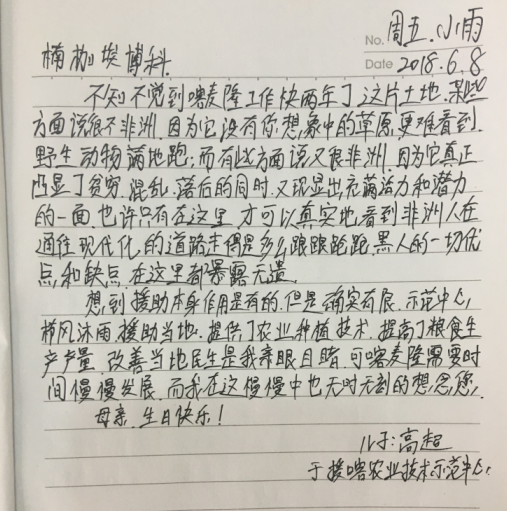 No. 周五.小雨
楠枷埃博科.
Date 2018.6.8
不知不觉到喀麦隆工作快两年了.这片土地.某些
方面说很不非洲.因为它没有你想象中的草原.更难看到
野生动物满地跑;而有些方面说又很非洲.因为它真正
凸显了贫穷.混乱.落后的同时.又现显出充满活力和潜力
的一面.也许只有在这里.才可以真实地看到非洲人在
通往现代化的道路走得是多么踉踉跑跑.黑人的一切优
点和缺点.在这里都暴露无遗.
想到援助本身作用是有的.但是确实有限.示范中心
栉风沐雨.援助当地.提供了农业种植技术.提高了粮食生
产产量.改善当地民生是我亲眼目睹.可喀麦隆需要时
间慢慢发展.而我在这慢慢中也无时无刻的想念您.
母亲.生日快乐!
儿子:高超
于援喀农业技术示范中心.